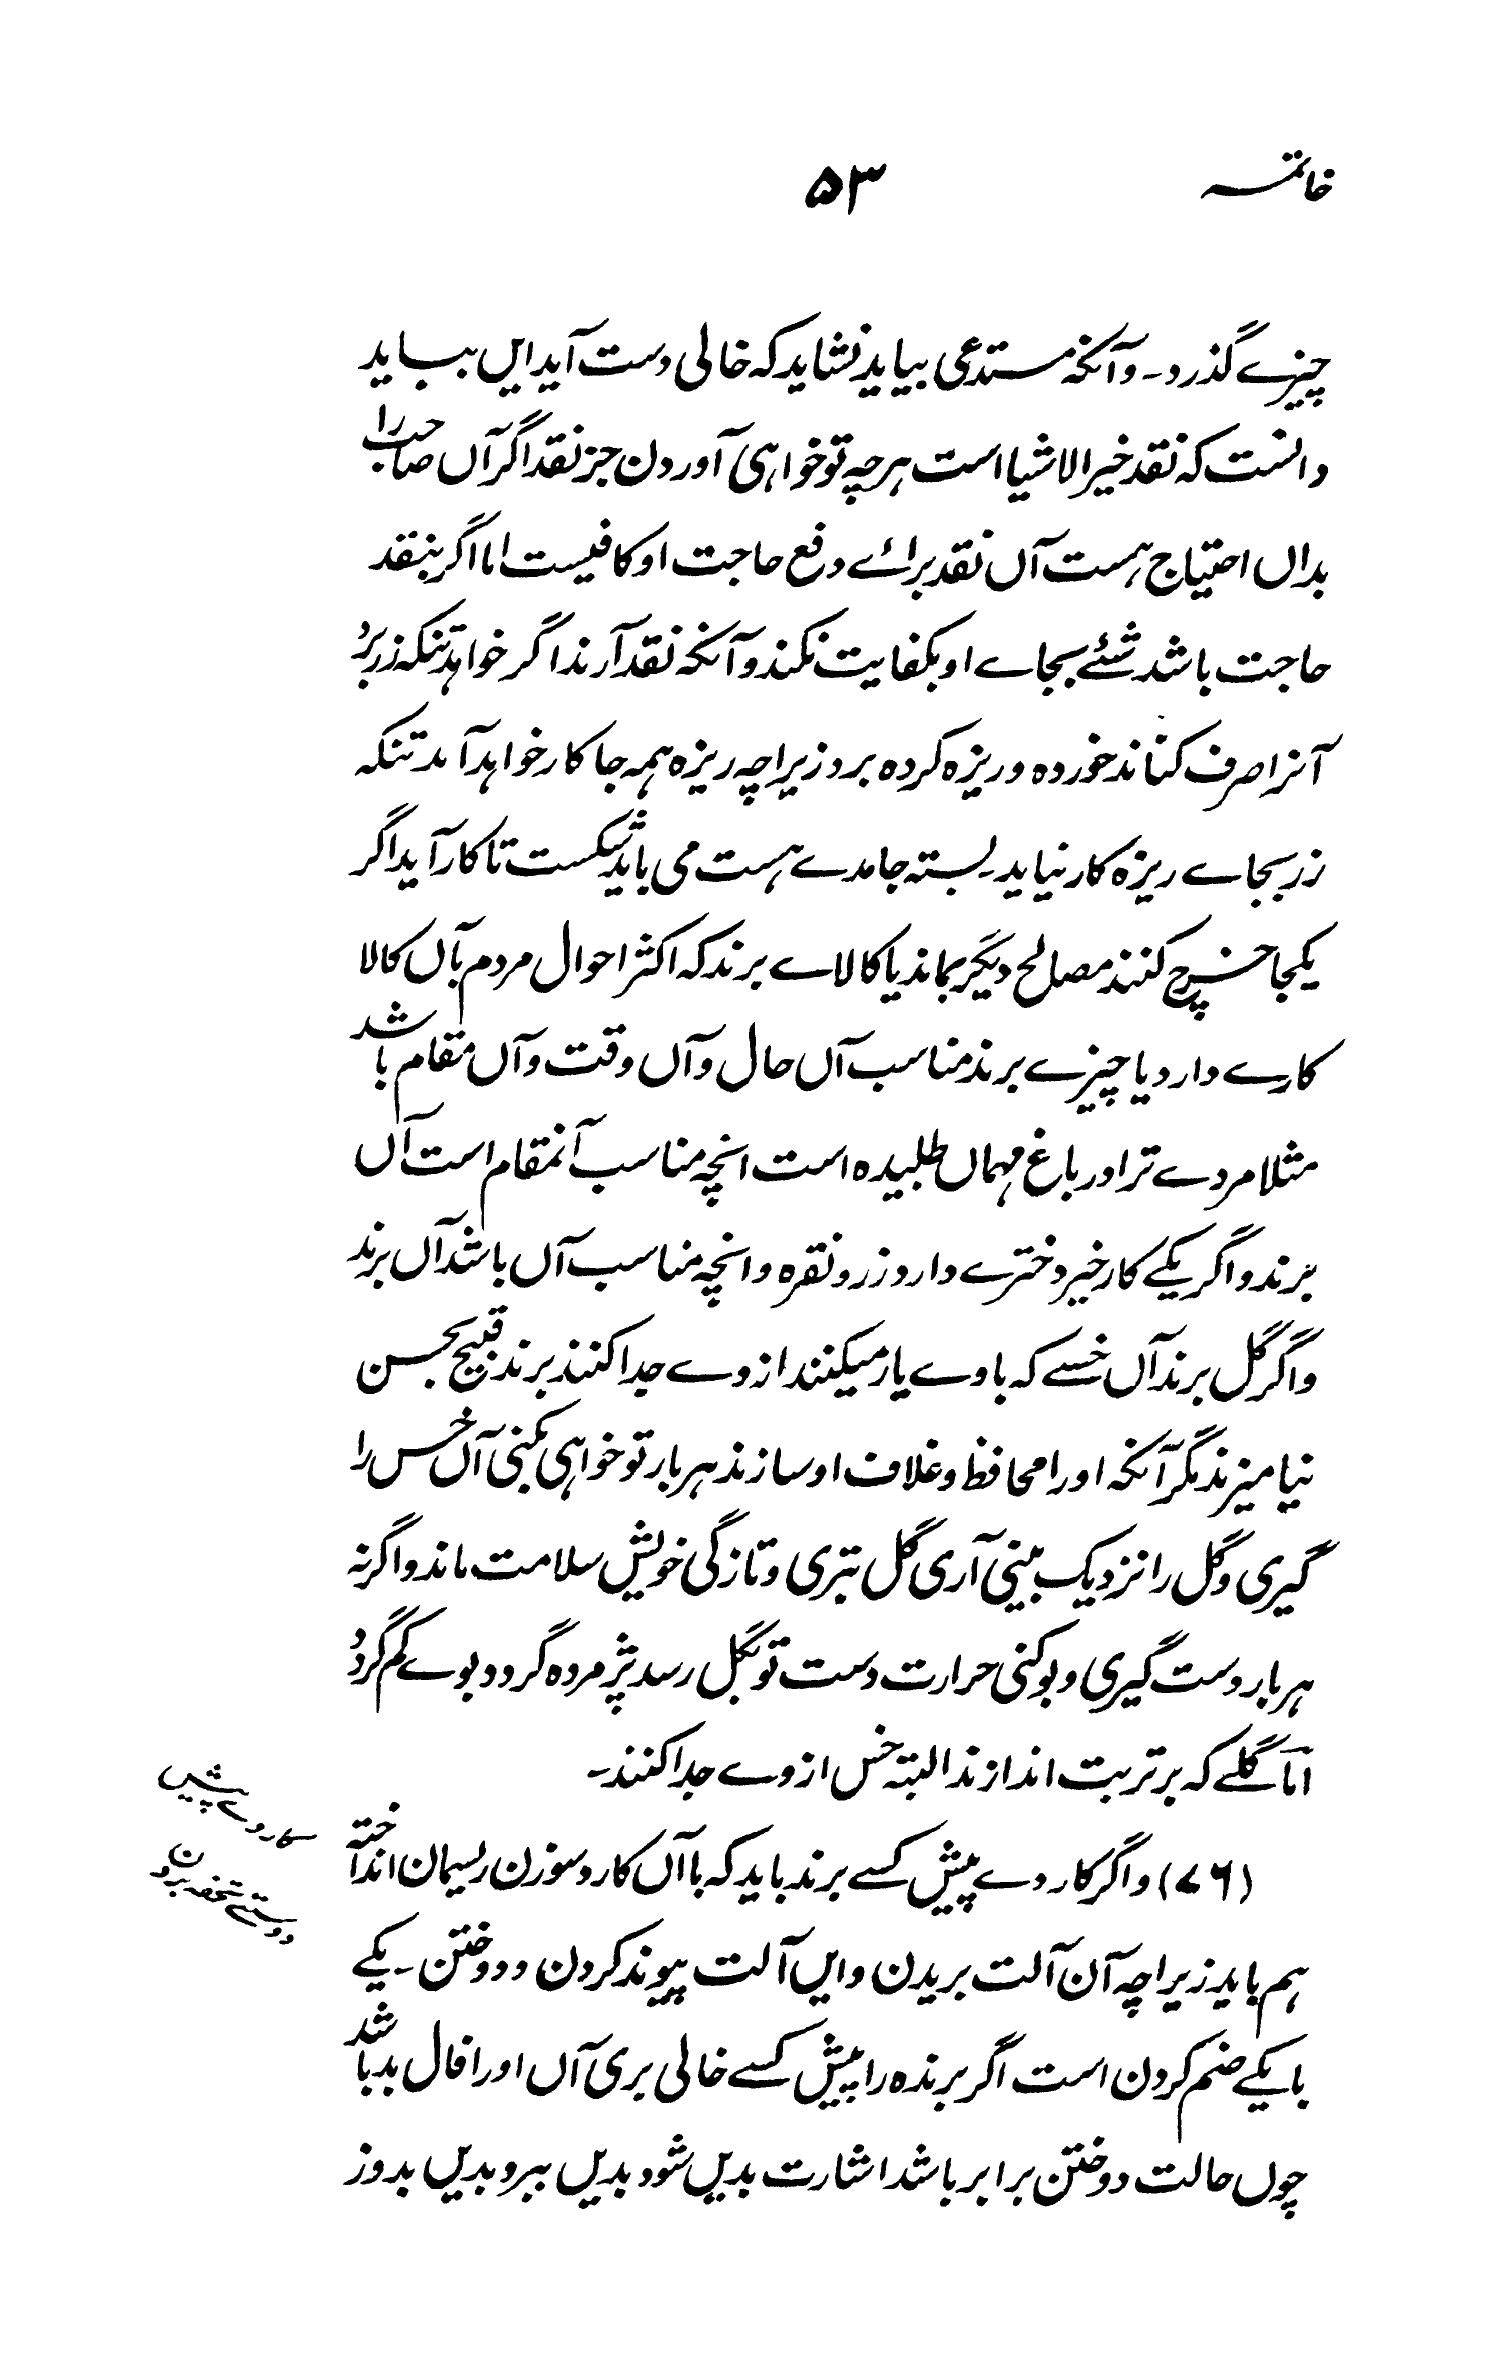 خاتمه ۵۳
چیزے گذرد۔ وآنکه مستدعی بیاید نشاید که خالی دست آید ایں بباید
دانست که نقد خیر الاشیا است هرچه تو خواهی آوردن جز نقد اگر آں صاحب را
بداں احتیاج هست آں نقد برائے دفع حاجت او کافیست اما اگر بنقد
حاجت باشد شئے بجاے او بکفایت نکند وآنکه نقد آرند اگر خواهد تنکه زر برد
آنرا صرف کناند خورده و ریزه کرده برد زیراچه ریزه همه جا کار خواهد آمد تنکه
زر بجاے ریزه کار نیاید۔ بسته جامدے هست می باید شکست تا کار آید اگر
یکجا خرچ کنند مصالح دیگر بماند یا کالاے برند که اکثر احوال مردم بآں کالا
کارے دارد یا چیزے برند مناسب آں حال و آں وقت و آں مقام باشد
مثلا مردے ترا در باغ مهماں طلبیده است انچه مناسب آنمقام است آں
برند و اگر یکے کار خیر دخترے دارد زر و نقره و انچه مناسب آں باشد آں برند
و اگر گل برند آں خسے که با وے یار میکنند از وے جدا کنند برند قبیح بحسن
نیامیزند مگر آنکه او را محافظ و غلاف او سازند هر بار تو خواهی مکنی آں خس را
گیری و گل را نزدیک بینی آری گل بتری و تازگی خویش سلامت ماند و اگر نه
هر بار دست گیری و بو کنی حرارت دست تو بگل رسد پژمرده گردد و بوے کم گردد
امّا گلے که بر تربت اندازند البته خس از وے جدا کنند۔
(۷۶) و اگر کاردے پیش کسے برند باید که با آں کارد سوزن ریسمان انداخته
هم باید زیراچه آن آلت بریدن و ایں آلت پیوند کردن و دوختن۔ یکے
با یکے ضم کردن است اگر برنده را پیش کسے خالی بری آں او را فال بد باشد
چوں حالت دوختن برابر باشد اشارت بدیں شود بدیں ببر و بدیں بدوز
کاردے پیش
دوستے تحفه بردن